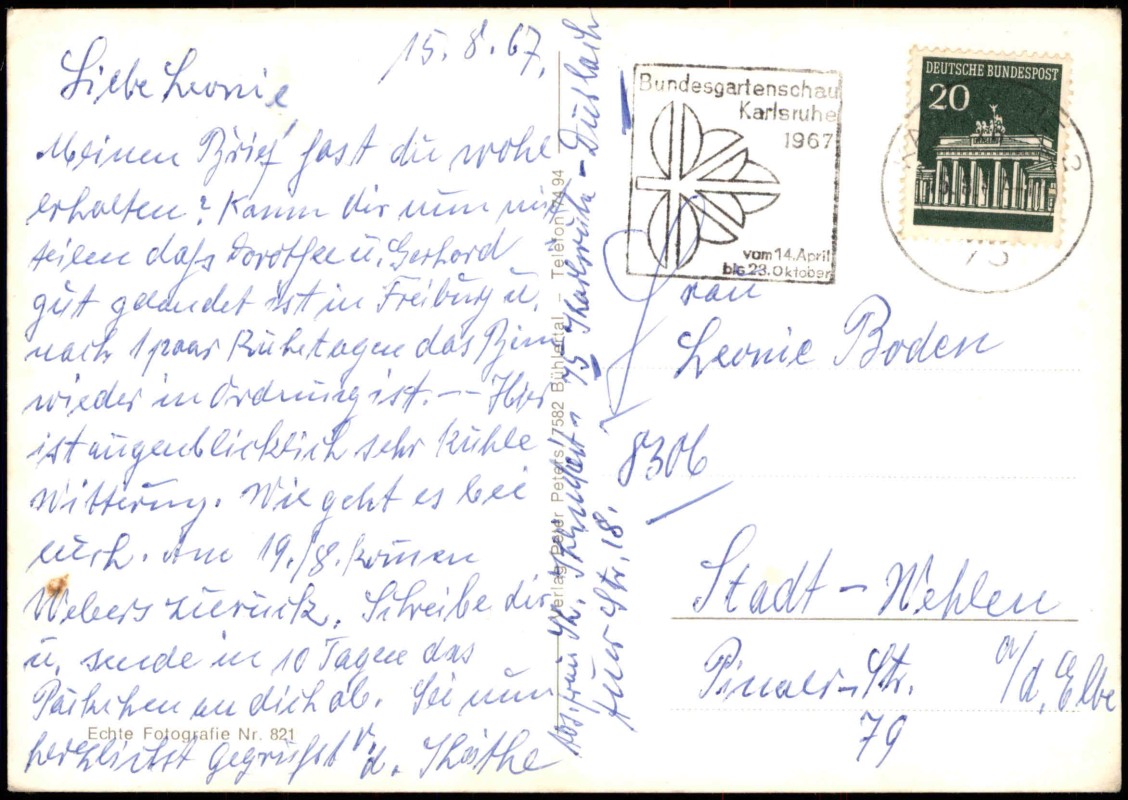 15. 8. 67.
Liebe Leonie
Meinen Brief hast du wohl
erhalten? Kann dir nun mit
teilen daß Dorothee u. Gerhard
gut gelandet ist in Freiburg u.
nach 1 paar Ruhetagen das Bein
wieder in Ordnung ist. -- Hier
ist augenblicklich sehr kühle
Witterung. Wie geht es bei
euch. Am 19./8. kommen
Webers zurück. Schreibe dir
u. sende in 10 Tagen das
Päckchen an dich ab. Sei nun
herzlichst gegrüßt v. d. Käthe
Echte Fotografie Nr. 821
Verlag Peter Peters 7582 Bühlertal – Telefon 7494
Abs. Frau K. 75 Karlsruhe - Durlach
Auer Str. 18.
Bundesgartenschau
Karlsruhe
1967
vom 14. April
bis 23. Oktober
DEUTSCHE BUNDESPOST
20
75
Frau
Leonie Boden
8306
Stadt - Wehlen
a/d. Elbe
Pirnaer-Str.
79